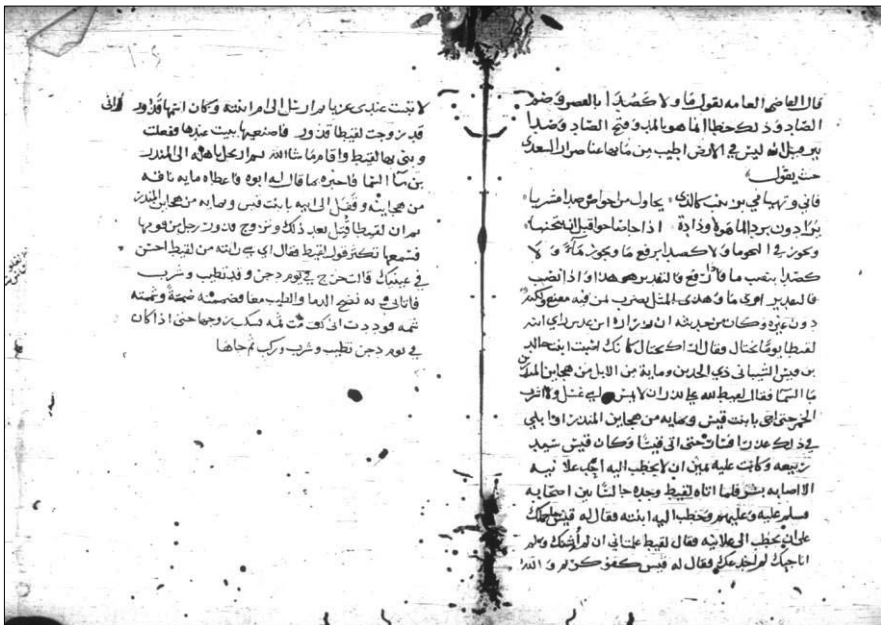 قال القاضى العامه تقول مَا ولا كَصُدَا بالقصر وضم
الصّاد وذلك خطا انما هو بالمد وفتح الصّاد وصدا
بير ليس في الارض اطيب من مايها عنا ضرار السعدى
حيث يقول
فاني وتهيامي بزينب كالذى يحاول من احواض صدا مشربا
يرى دون برد الما هولا وذادة اذا صاحوا قبل ان
ويجوز في النحو ما ولا كصدا برفع ما ويجوز مآءً ولا
كصدا بنصب ما فان رفع فالتقدير هو هذا واذا نصب
فالتقدير ارى ما وهذى المثل يضرب لمن فيه مقنع ولكن
دون غيره وكان من حديثه ان زراره ابن عدس راى ابنه
لقيطا يومًا يختال فقال انك تختال كانك اصبت ابنة خالد
بن قيس الشيباني ذي الجدين ومايه من الابل من هجاين المنذر بن
مَا السّمَا فقال لقيط لله علي ان لا يمس راسي غسل ولا اشرب
الخمر حتى اجى بابنت قيس ومايه من هجاين المنذر او ابلي
في ذلك عذرا فسار حتى اتى قيسًا وكان قيس سيد
ربيعه وكانت عليه يمين ان لا يخطب اليه احد علانيه
الا اصابه بشر فلما اتاه لقيط وجده جالسًا بين اصحابه
وسلم عليه وعليهم وخطب اليه ابنته فقال له قيس ما حملك
على ان تخطب الي علانيه فقال لقيط علمت اني ان لم وان
اناجيك لم اخدعك فقال له قيس كفو كريم والله
١٠٤
لا تبت عندى عزبا ثم ارسل الى ام ابنته وكان اسمها قذور اني
قد زوجت لقيطا قذور فاصنعيها يبيت عندها ففعلت
وبنى بها لقيط واقام ما شا الله ثم ارتحل باهله الى المنذر
بن مآ السّمَا فاخبره بما قال له ابوه فاعطاه مايه ناقه
من هجاينه وقفل الى ابيه بابنت قيس ومايه من هجاين المنذر
ثم ان لقيطا قُتل بعد ذلك وتزوج قذور رجل من قومها
فسمعها تكثر قول لقيط فقال اي شي رايته من لقيط احسن
في عينيك قالت خرج في يوم دجن وقد تطيب وشرب
فاتاني وبه نضح الدما والطيب معا فضمني ضمةً وشمني
شمه فوددت اني كنت مت ثمه فسكت زوجها حتى اذا كان
في يوم دجن تطيب وشرب وركب ثم جاها